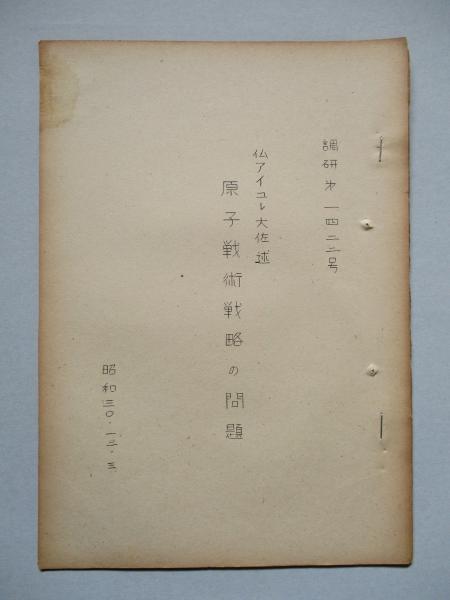 調研才一四二二号
仏アイユレ大佐述
原子戦術戦略の問題
昭和三〇・一二・三